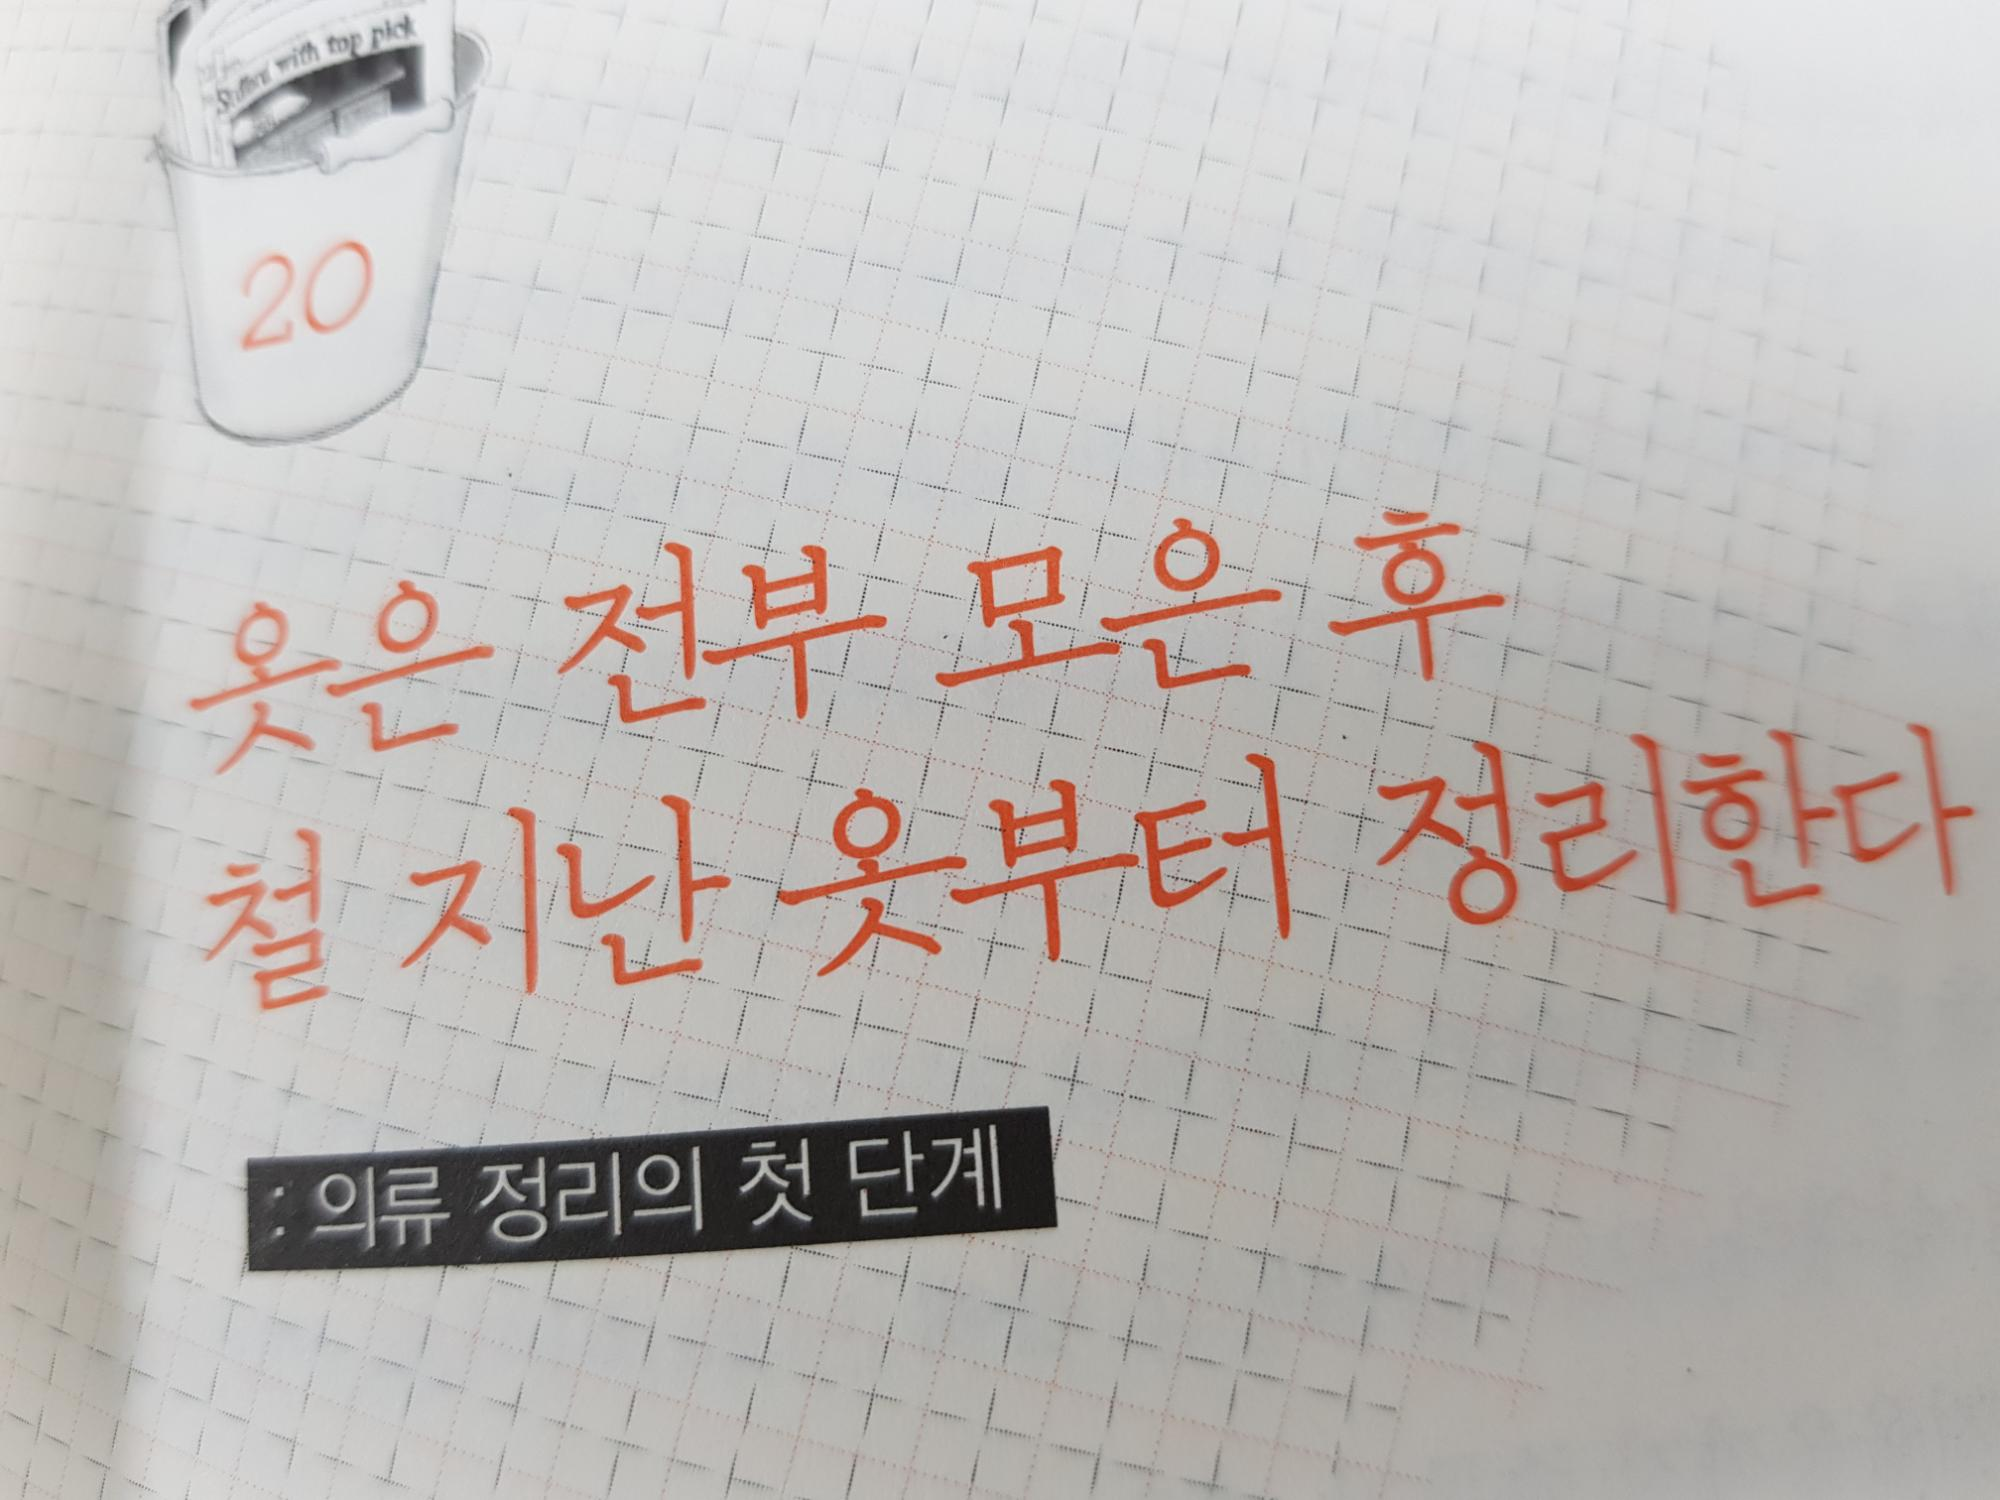 with top pick
20
옷은 전부 모은 후
철 지난 옷부터 정리한다
: 의류 정리의 첫 단계